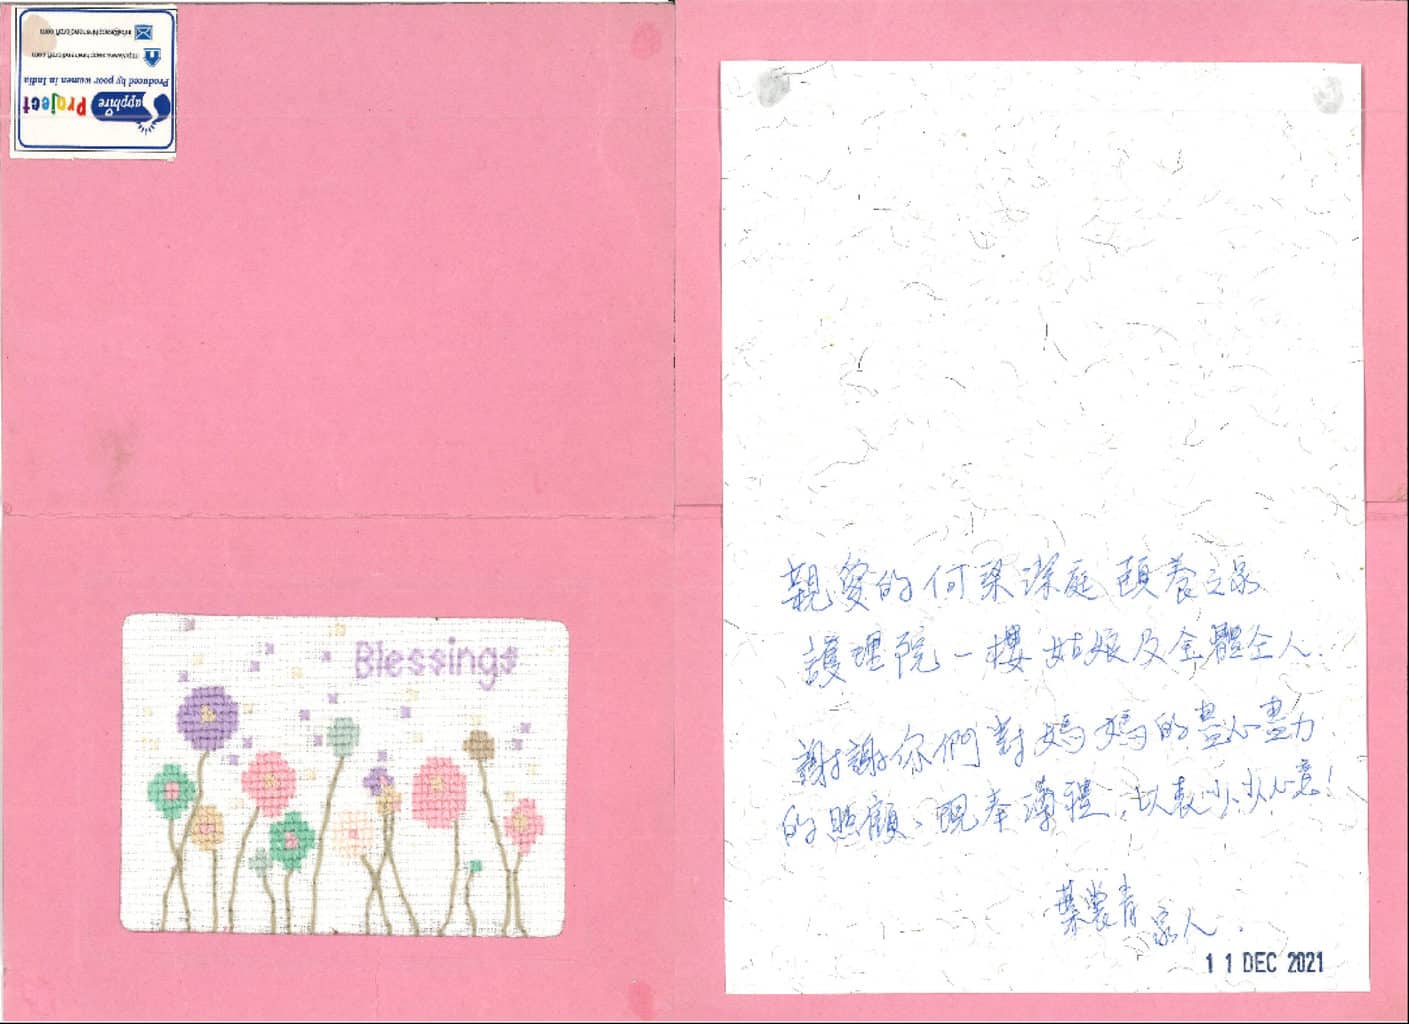 Sapphire Project
Produced by poor women in India
http://www.sapphirehandicraft.com
info@sapphirehandicraft.com
Blessings
親愛的何梁潔庭頤養之家
護理院一樓姑娘及全體仝人.
謝謝你們對媽媽的盡心盡力
的照顧、現奉薄禮, 以表小小心意!
葉裳青
家人.
11 DEC 2021